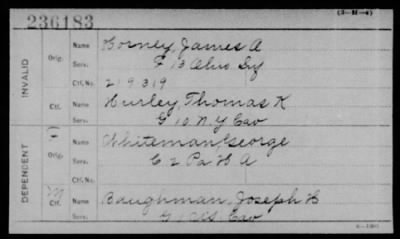 (3-H-4)
236183
INVALID
Orig.
Name Borney, James A
Serv. F 13 Ohio Inf
Ctf. No. 219319
Ctf.
Name Hurley, Thomas K
Serv. G 10 N.Y. Cav
DEPENDENT
Orig.
Name Whiteman, George
Serv. C 2 Pa H A
Ctf. No.
Ctf.
Name Baughman, Joseph H
Serv. G 1 US. Cav